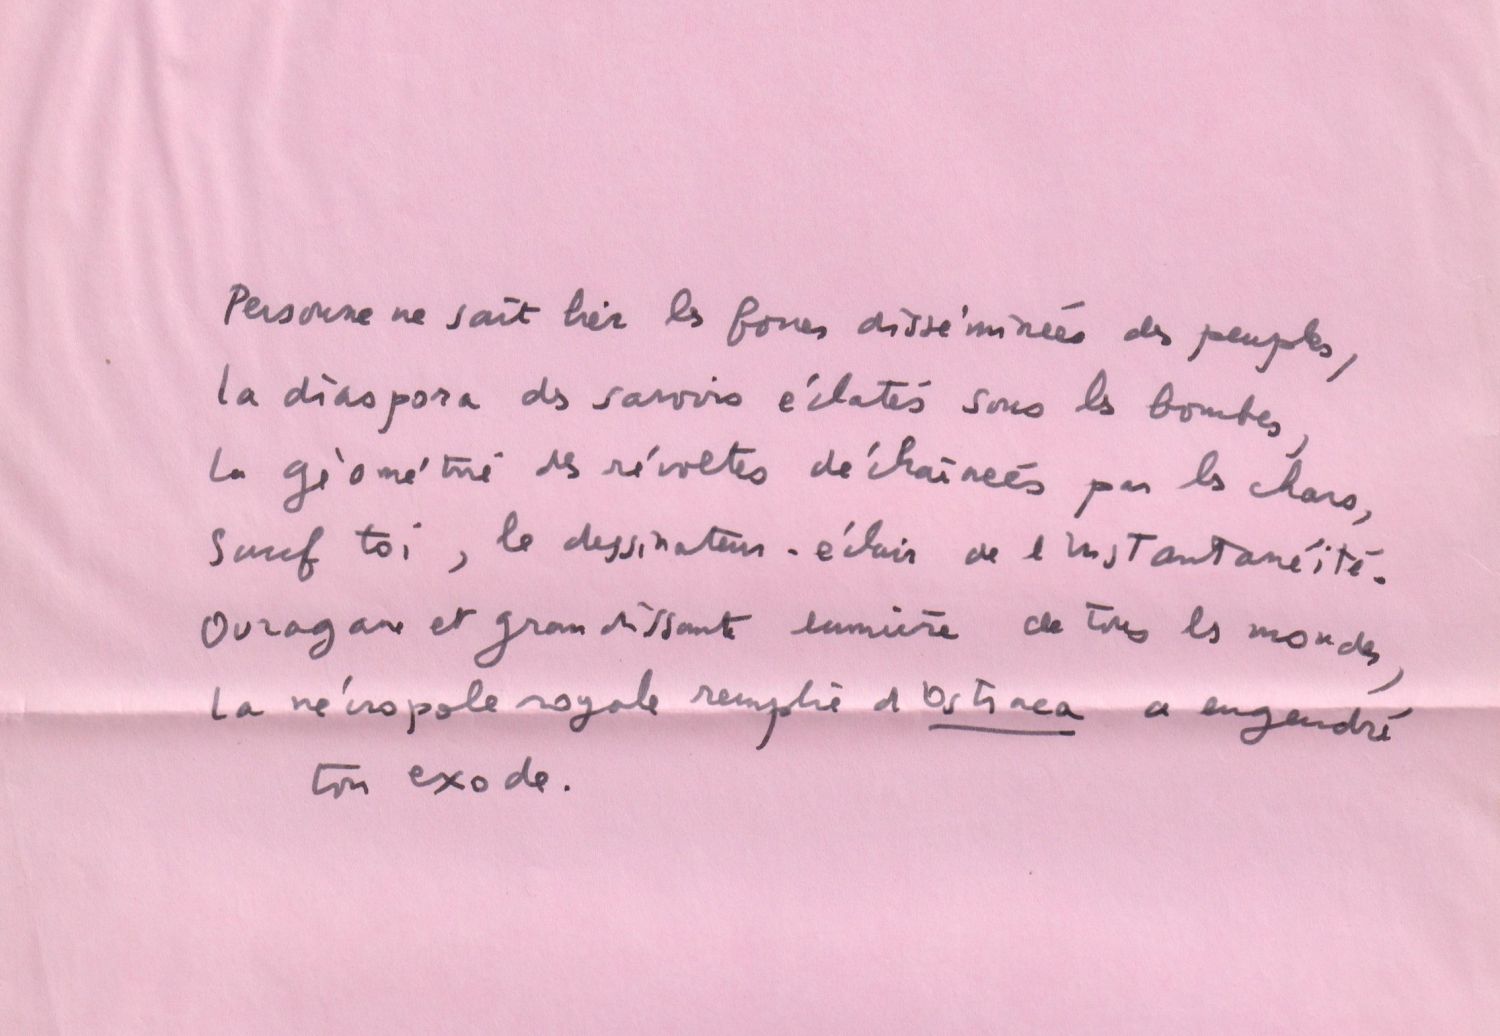 Personne ne sait lier les forces disséminées des peuples,
la diaspora des savoirs éclatés sous les bombes,
la géométrie des révoltes déchaînées par les chars,
Sauf toi, le dessinateur-éclair de l'instantanéité.
Ouragan et grandissante lumière de tous les mondes,
La nécropole royale remplie d'Ostraca a engendré
ton exode.